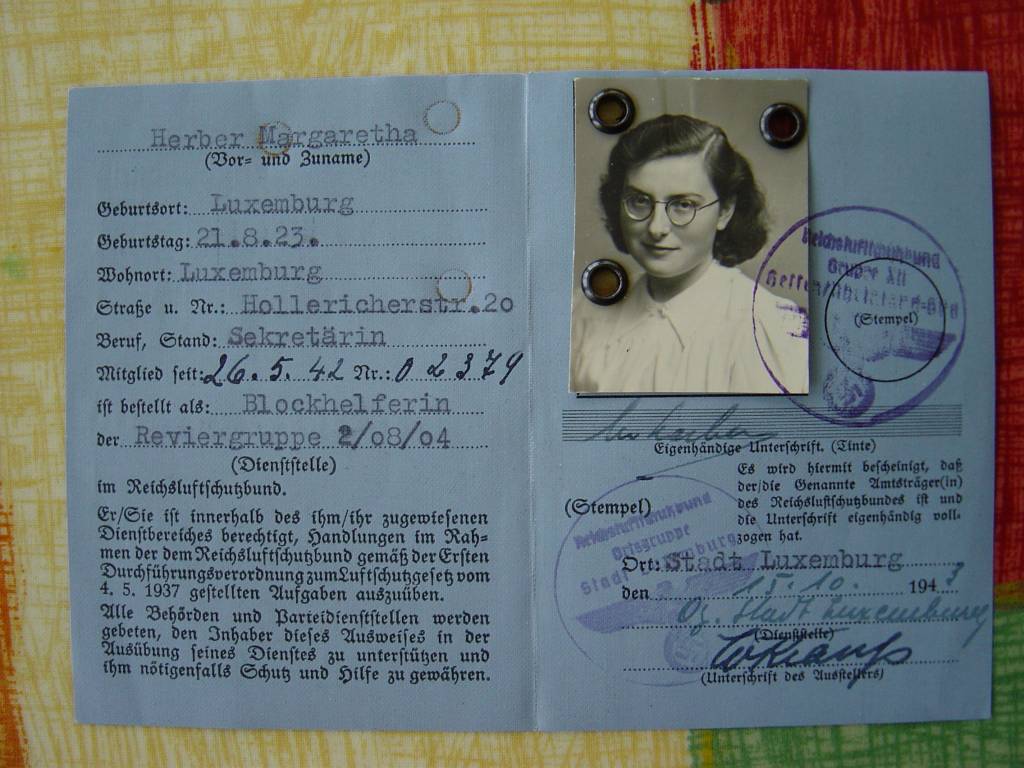 Herber Margaretha
(Vor= und Zuname)
Geburtsort: Luxemburg
Geburtstag: 21.8.23.
Wohnort: Luxemburg
Straße u. Nr.: Hollericherstr.2o
Beruf, Stand: Sekretärin
Mitglied seit: 26.5.42 Nr.: 02379
ist bestellt als: Blockhelferin
der Reviergruppe 2/o8/o4
(Dienststelle)
im Reichsluftschutzbund.
Er/Sie ist innerhalb des ihm/ihr zugewiesenen
Dienstbereiches berechtigt, Handlungen im Rah-
men der dem Reichsluftschutzbund gemäß der Ersten
Durchführungsverordnung zum Luftschutzgesetz vom
4. 5. 1937 gestellten Aufgaben auszuüben.
Alle Behörden und Parteidienststellen werden
gebeten, den Inhaber dieses Ausweises in der
Ausübung seines Dienstes zu unterstützen und
ihm nötigenfalls Schutz und Hilfe zu gewähren.
Reichsluftschutzbund
Gruppe XII
(Stempel)
Eigenhändige Unterschrift. (Tinte)
Es wird hiermit bescheinigt, daß
der/die Genannte Amtsträger(in)
des Reichsluftschutzbundes ist und
die Unterschrift eigenhändig voll-
zogen hat.
(Stempel)
Reichsluftschutzbund
Ortsgruppe
Stadt Luxemburg
Ort: Stadt Luxemburg
den 15.10. 1943
Og. Stadt Luxemburg
(Dienststelle)
(Unterschrift des Ausstellers)